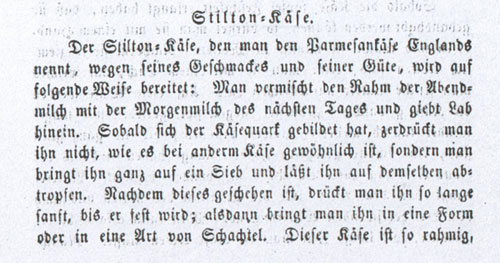 Stilton-Käse.
Der Stilton-Käse, den man den Parmesankäse Englands
nennt, wegen seines Geschmackes und seiner Güte, wird auf
folgende Weise bereitet: Man vermischt den Rahm der Abend-
milch mit der Morgenmilch des nächsten Tages und giebt Lab
hinein. Sobald sich der Käsequark gebildet hat, zerdrückt man
ihn nicht, wie es bei anderm Käse gewöhnlich ist, sondern man
bringt ihn ganz auf ein Sieb und läßt ihn auf demselben ab-
tropfen. Nachdem dieses geschehen ist, drückt man ihn so lange
sanft, bis er fest wird; alsdann bringt man ihn in eine Form
oder in eine Art von Schachtel. Dieser Käse ist so rahmig,